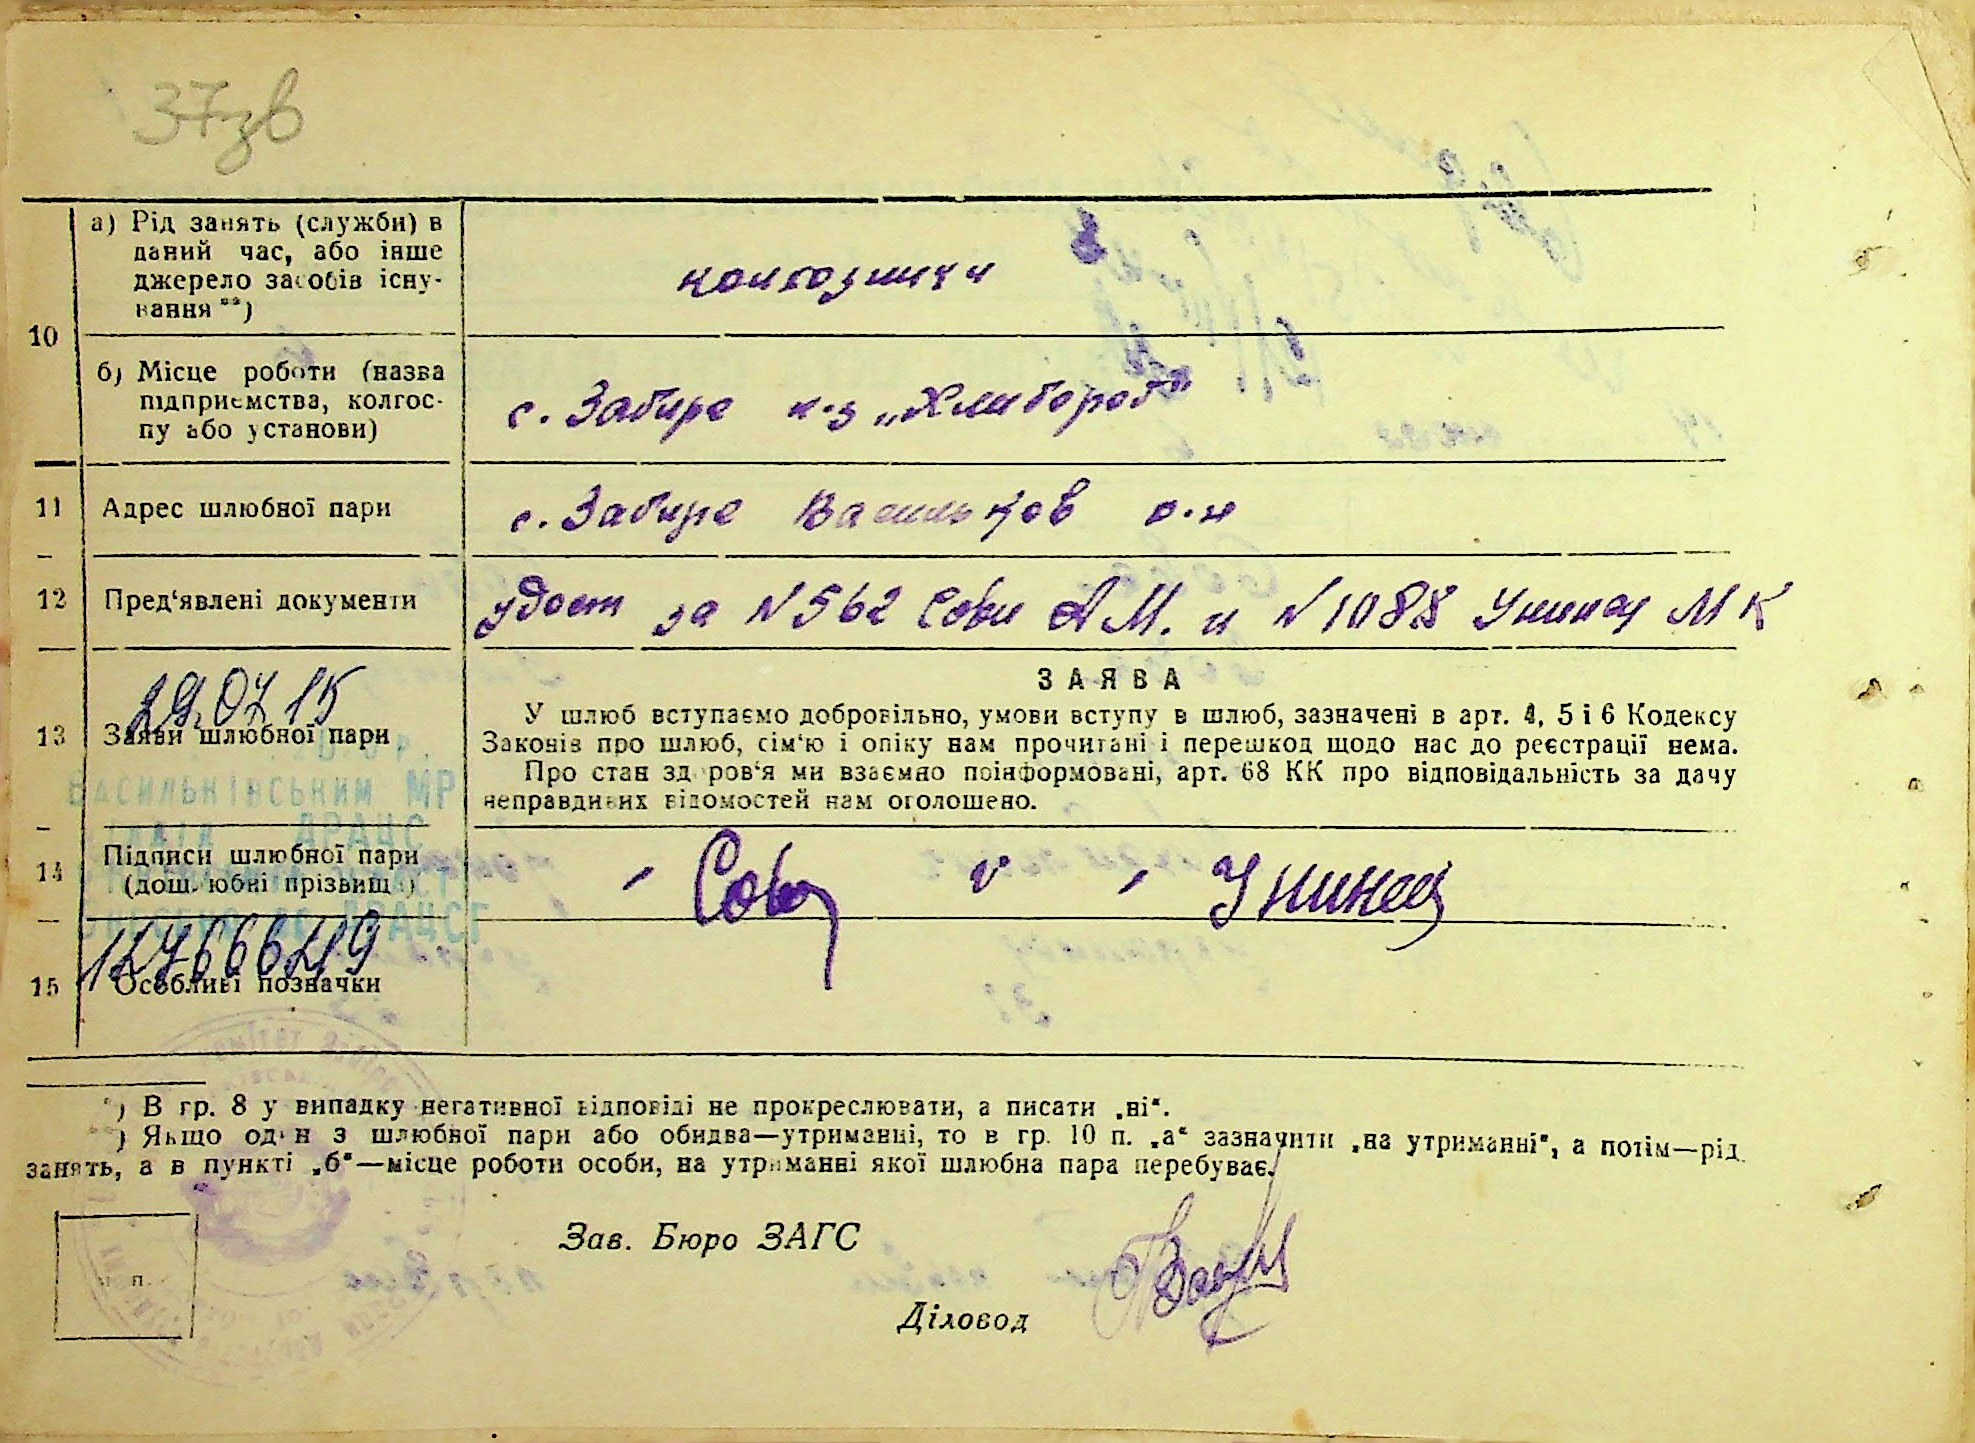 37зв
а) Рід занять (служби) в
даний час, або інше
джерело засобів існу-
вання **)
колгозники
10
б) Місце роботи (назва
підприємства, колгос-
пу або установи)
с. Забирє к-з „Хлибороб"
11 Адрес шлюбної пари
с. Забирє Васильков р-н
12 Пред‘явлені документи
удост за N 562 Совы А М. и N 1088 Униная М К
29.07.15
13 Заяви шлюбної пари
ЗАЯВА
У шлюб вступаємо добровільно, умови вступу в шлюб, зазначені в арт. 4, 5 і 6 Кодексу
Законів про шлюб, сім‘ю і опіку нам прочитані і перешкод щодо нас до реєстрації нема.
Про стан здоров‘я ми взаємно поінформовані, арт. 68 КК про відповідальність за дачу
неправдивих відомостей нам оголошено.
ВАСИЛЬКІВСЬКИМ МР
ДРАЦС
14 Підписи шлюбної пари
(дошлюбні прізвища)
Сова
ДРАЦСГ
15 Особливі позначки
*) В гр. 8 у випадку негативної відповіді не прокреслювати, а писати „ні“.
**) Якщо один з шлюбної пари або обидва—утриманці, то в гр. 10 п. „а“ зазначити „на утриманні“, а потім—рід
занять, а в пункті „б“—місце роботи особи, на утриманні якої шлюбна пара перебуває.
Зав. Бюро ЗАГС
п.
Діловод